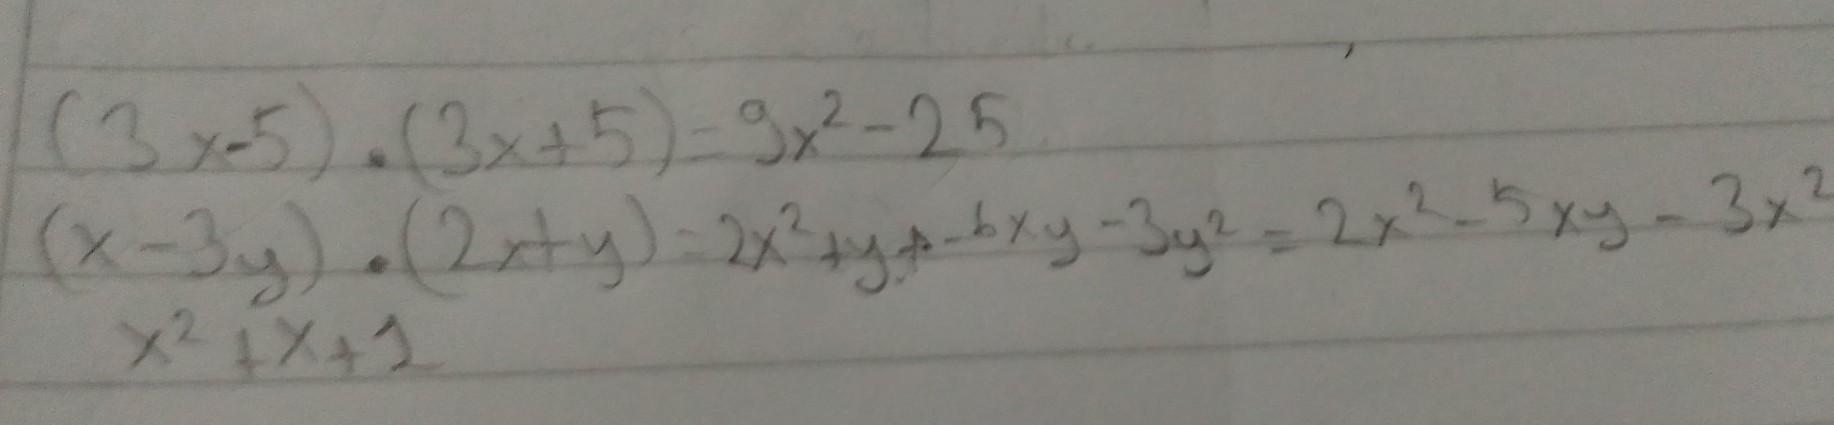 (3x-5).(3x+5)=9x²-25
(x-3y).(2x+y)=2x²+y+-6xy-3y²=2x²-5xy-3x²
x²+x+1